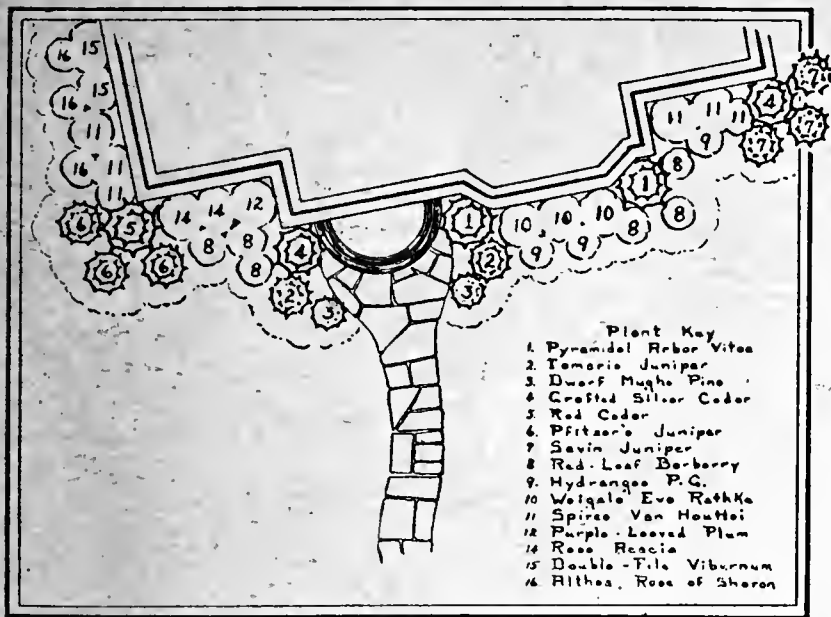 16 15
16 15
11
16 11
11
6 5
6 6
14 14 12
8 8
8
4
2
3
1
2
3
10 10 10
9 9 8
1
8
8
11 11 11
9
4
7
7
7
Plant Key
1. Pyramidal Arbor Vitae
2. Tamarix Juniper
3. Dwarf Mugho Pine
4 Grafted Silver Cedar
5. Red Cedar
6. Pfitzer's Juniper
7 Savin Juniper
8 Red-Leaf Barberry
9. Hydrangea P.G.
10 Weigela Eva Rathke
11 Spirea Van Houttei
12 Purple-Leaved Plum
14 Rose Acacia
15 Double-File Viburnum
16 Althea, Rose of Sharon